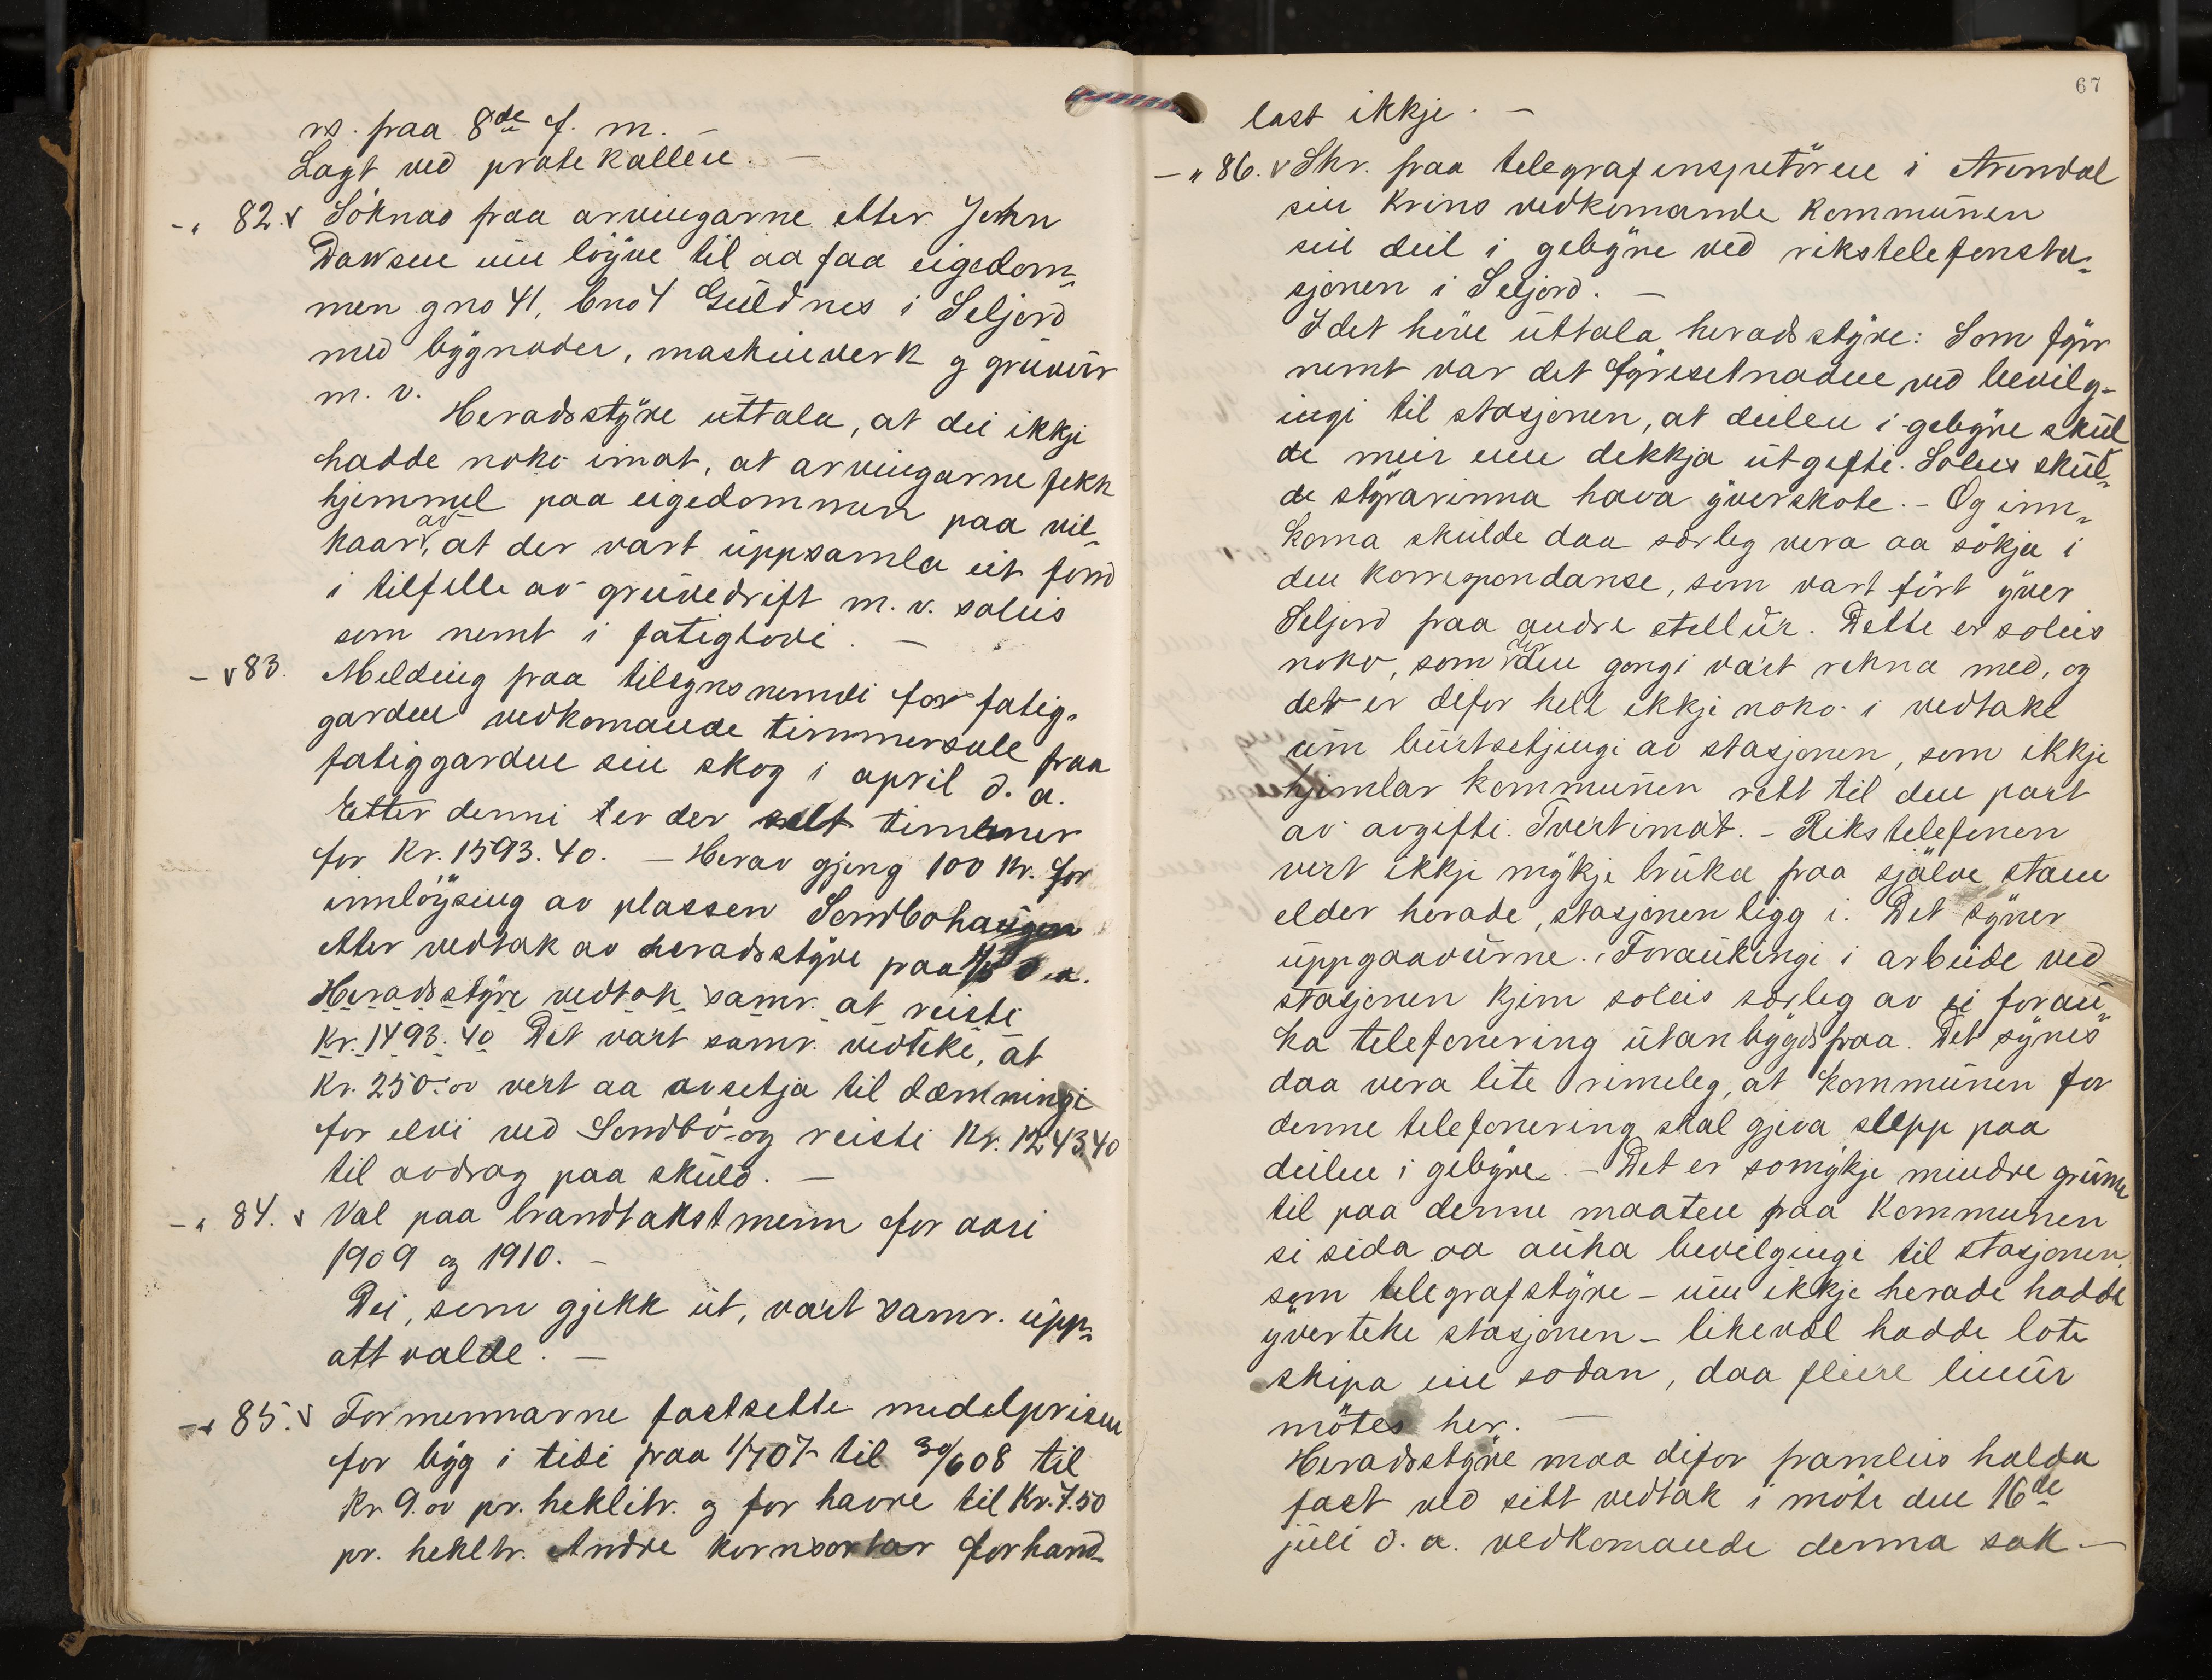 rs. fraa 8de f. m. –
Lagt ved protekallen. –
– „ 82. v Söknad fraa arvingarne etter John
Dawsen um löyve til aa faa eigedom-
men gno 41, bno 4 Guldnes i Seljord
med bygnader, maskinverk og gruvur
m. v.
Heradsstyre uttala, at dei ikkje
hadde noko imot, at arvingarne fekk
hjemmel paa eigedommen paa vil-
kaar av, at der vart uppsamla eit fond
i tilfelle av gruvedrift m. v. soleis
som nemt i fatiglovi. –
– v 83. Melding fraa tilsynsnemdi for fatig-
garden vedkomande timmersale fraa
fatiggarden sin skog i april d. a.
Etter denni er der selt timmer
for Kr. 1593.40. – Herav gjeng 100 kr. for
innlöysing av plassen Sendbohaugen
etter vedtak av heradsstyre paa d. a.
Heradsstyre vedtok samr. at reisti
Kr. 1493.40 Det vart samr. vedteke, at
Kr. 250.00 vert aa avsetja til dæmningi
for elvi ved Sendbö og reisti Kr. 1243.40
til avdrag paa skuld. –
– „ 84. v Val paa brandtakstmenn for aari
1909 og 1910. –
Dei, som gjekk ut, vart samr. upp-
att valde. –
– „ 85. v Formennarne fastsette medelprisen
for byg i tidi fraa 1/7 07 til 30/6 08 til
Kr 9.00 pr. heklitr. og for havre til Kr. 7.50
pr. hekltr. Andre kornsortar forhand-
67
last ikkje. –
– „ 86. v Skr. fraa telegrafinspetören i Arendal
sin krins vedkomande kommunen
sin deil i gebyre ved rikstelefonsta-
sjonen i Seljord. –
I det höve uttala heradsstyre: Som fyrr
nemt var det fyresetnaden ved bevilg-
ingi til stasjonen, at deilen i gebyre skul-
de meir enn dekkja utgifti. Soleis skul-
de styrarinna hava yverskote. – Og inn-
koma skulde daa særleg vera aa sökja i
den korrespondanse, som vart fört yver
Seljord fraa andre stellur. Dette er soleis
noko, som der den gongi vart rekna med, og
det er difor hell ikkje noko i vedtake
um burtsetjingi av stasjonen, som ikkje
hjimlar kommunen rett til den part
av avgifti. Tvertimot. – Rikstelefonen
vert ikkje mykje bruka fraa sjölve staen
elder herade, stasjonen ligg i. Det syner
uppgaavurne. Foraukingi i arbeide ved
stasjonen kjem soleis særleg av ei forau-
ka telefonering utanbygdsfraa. Det synes
daa vera lite rimeleg, at kommunen for
denne telefonering skal gjeva slepp paa
deilen i gebyre. – Det er somykje mindre grunn
til paa denne maaten fraa kommunen
si sida aa auka bevilgingi til stasjonen,
som telegrafstyre – um ikkje herade hadde
yverteke stasjonen – likevæl hadde lote
skipa ein sodan, daa fleire linur
mötes her. –
Heradsstyre maa difor framleis halda
fast ved sitt vedtak i möte den 16de
juli d. a. vedkomande denna sak. –